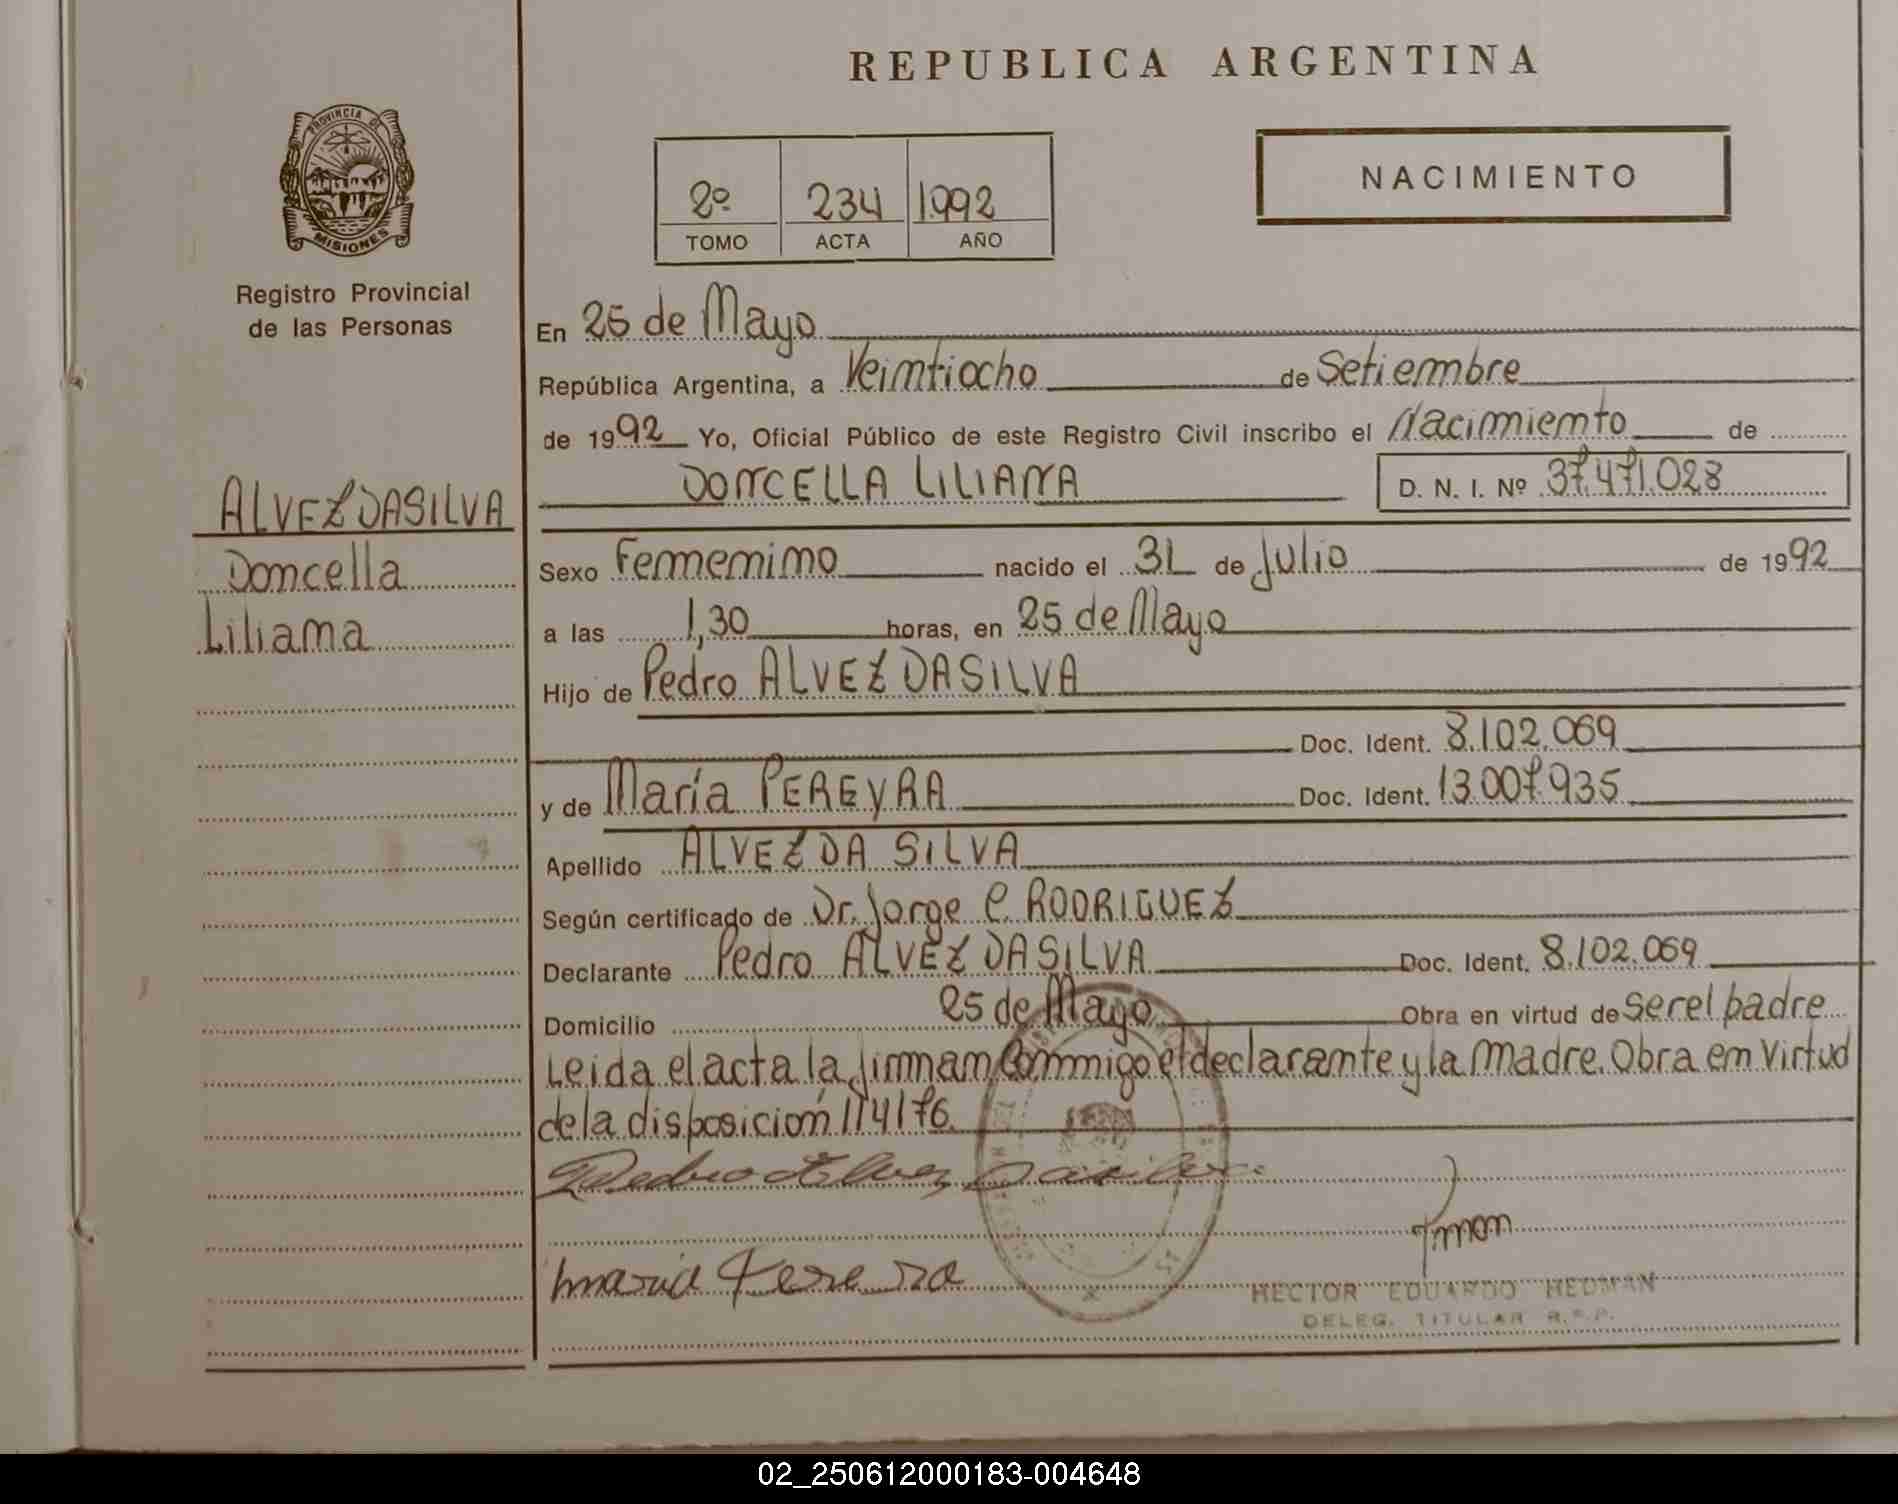 REPUBLICA ARGENTINA
PROVINCIA DE
MISIONES
Registro Provincial
de las Personas
2º 234 1992
TOMO ACTA AÑO
NACIMIENTO
ALVEZ DASILVA
Doncella
Liliana
En 25 de Mayo
República Argentina, a Veintiocho de Setiembre
de 1992 Yo, Oficial Público de este Registro Civil inscribo el Nacimiento de
DONCELLA LILIANA D. N. I. Nº 37.471.028
Sexo Femmenino nacido el 31 de Julio de 1992
a las 1,30 horas, en 25 de Mayo
Hijo de Pedro ALVEZ DASILVA
Doc. Ident. 8.102.069
y de María PEREYRA Doc. Ident. 13.007.935
Apellido ALVEZ DA SILVA
Según certificado de Dr. Jorge C. RODRIGUEZ
Declarante Pedro ALVEZ DASILVA Doc. Ident. 8.102.069
Domicilio 25 de Mayo Obra en virtud de ser el padre
Leida el acta la firman conmigo el declarante y la madre. Obra en virtud
de la disposición 114/76.
Pedro Alvez Dasilva
maria Pereyra
HECTOR EDUARDO HEDMAN
DELEG. TITULAR R.P.P.
02_250612000183-004648